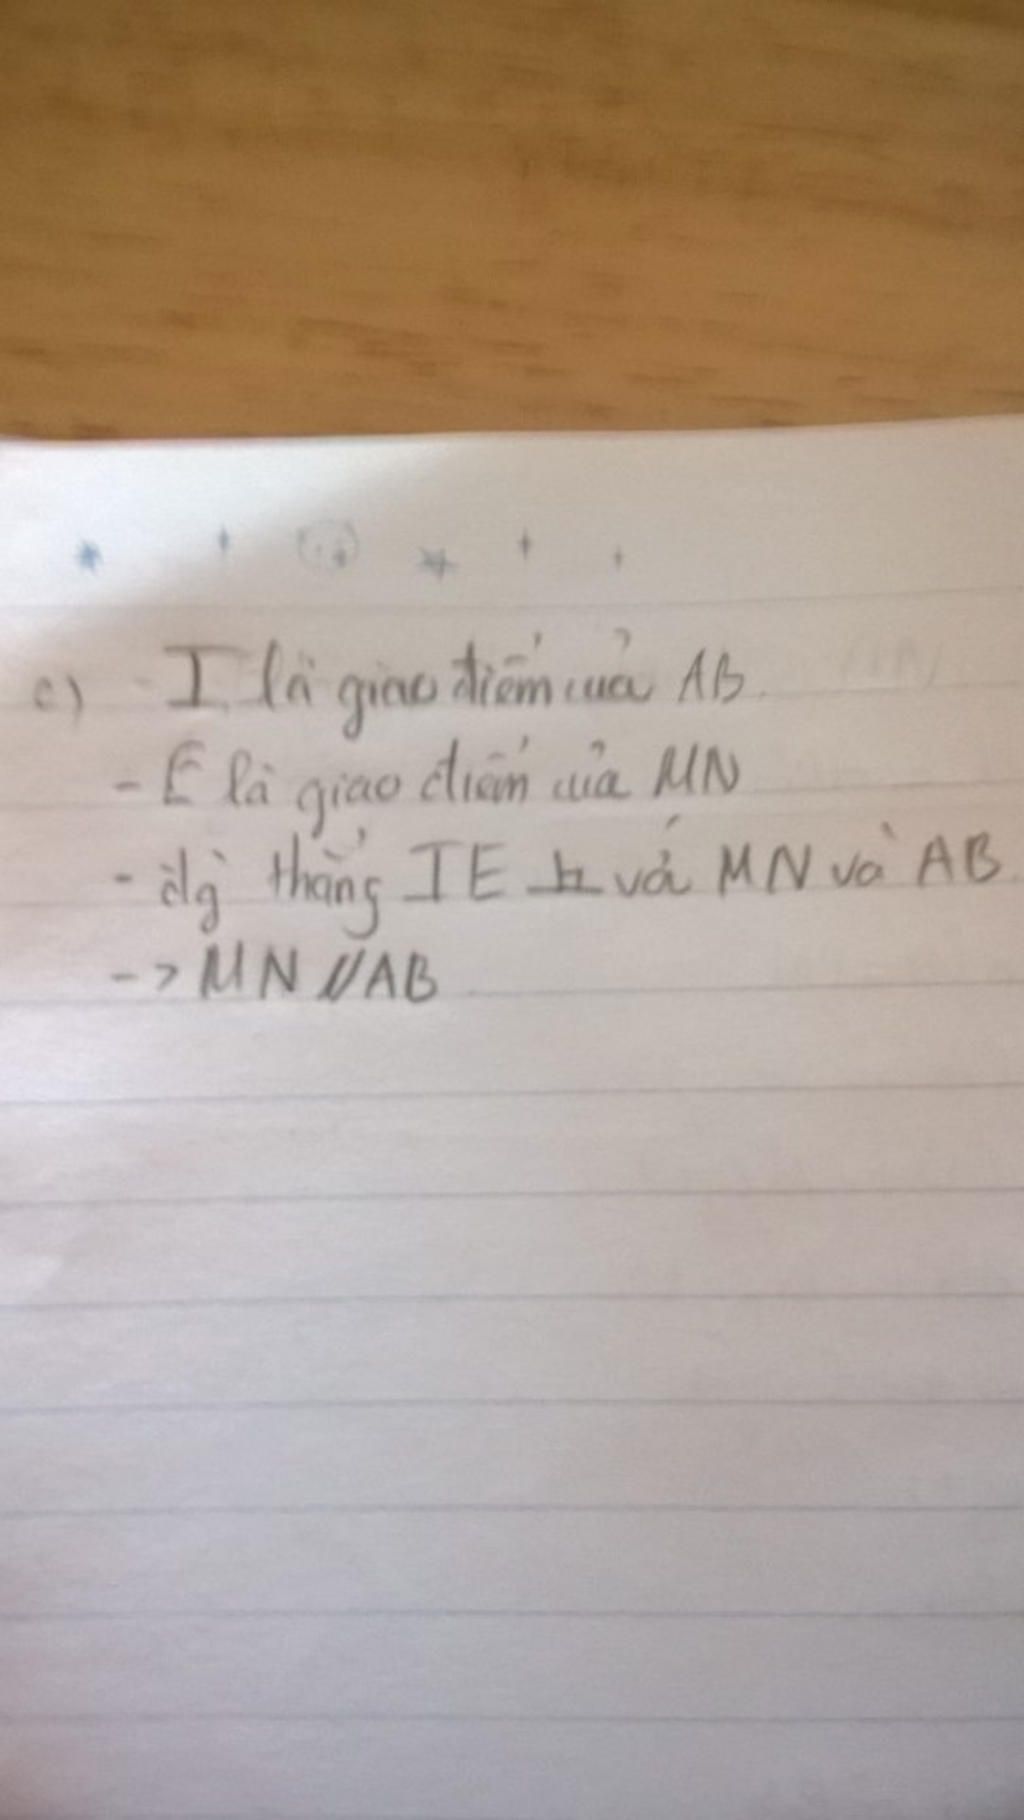 c) - I là giao điểm của AB
- E là giao điểm của MN
- đg thẳng IE ⊥ với MN và AB
-> MN // AB